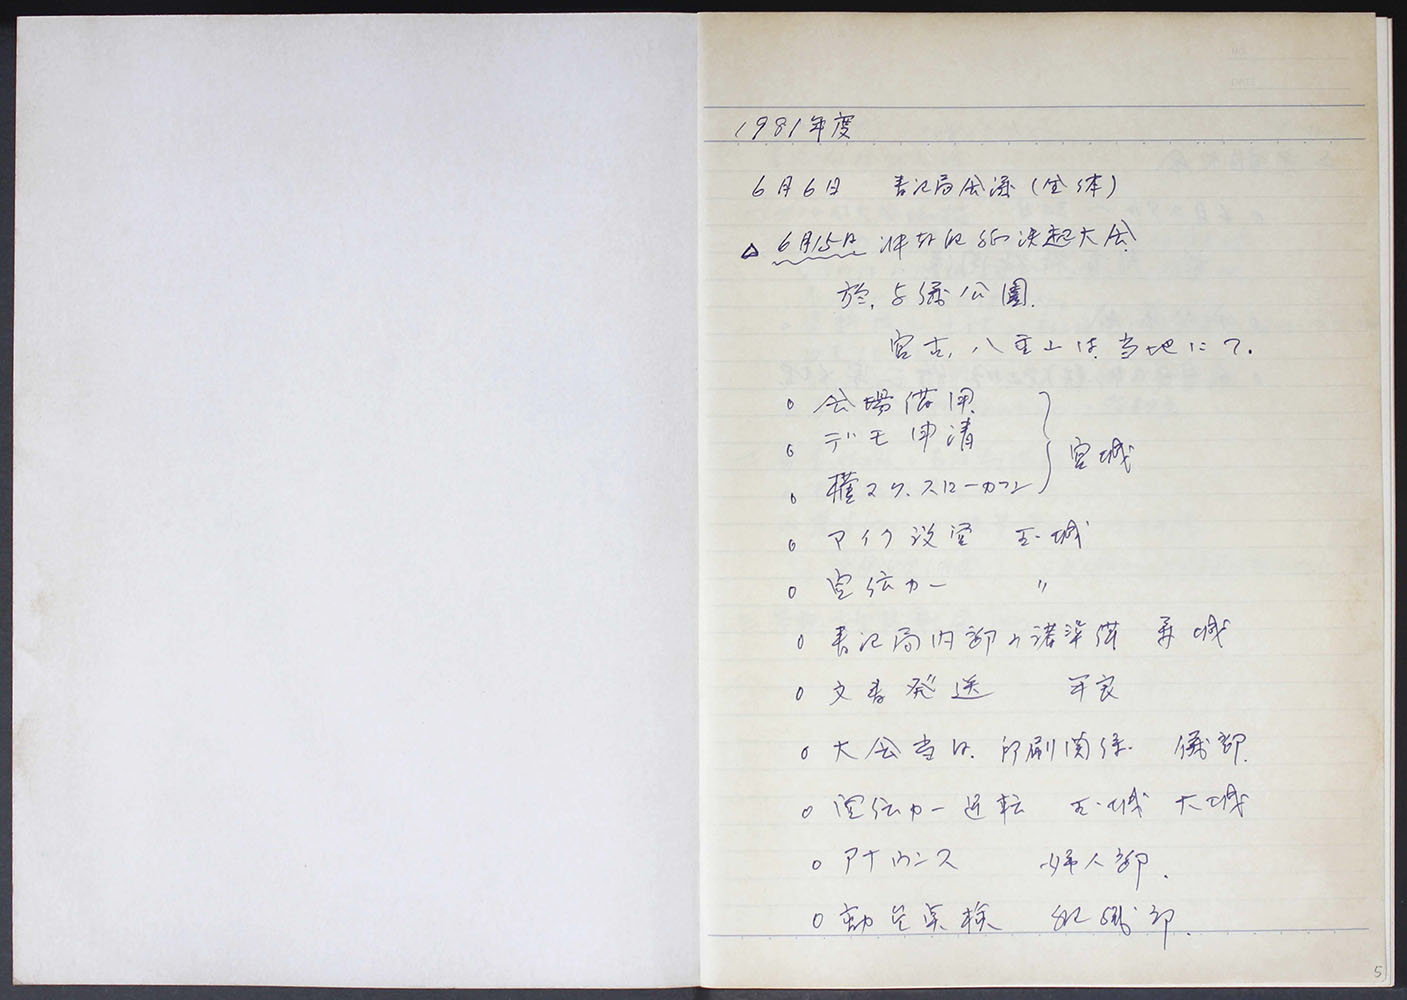 1981年度
6月6日 書記局会議(全体)
△ 6月15日 決起大会
於、与儀公園.
宮古、八重山は、当地にて.
○ 会場借用
○ デモ申請 宮城
○ 横マク、スローガン
○ マイク設置 玉城
○ 宣伝カー 〃
○ 書記局内部の諸準備 城
○ 文書発送 平良
○ 大会当日、印刷関係 儀部.
○ 宣伝カー運転 玉城 大城
○ アナウンス 婦人部.
○ 動員点検 組織部.
5